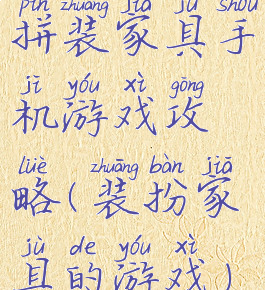 pīn zhuāng jiā jù shǒu
拼装家具手
jī yóu xì gōng
机游戏攻
lüè zhuāng bàn jiā
略(装扮家
jù de yóu xì
具的游戏)